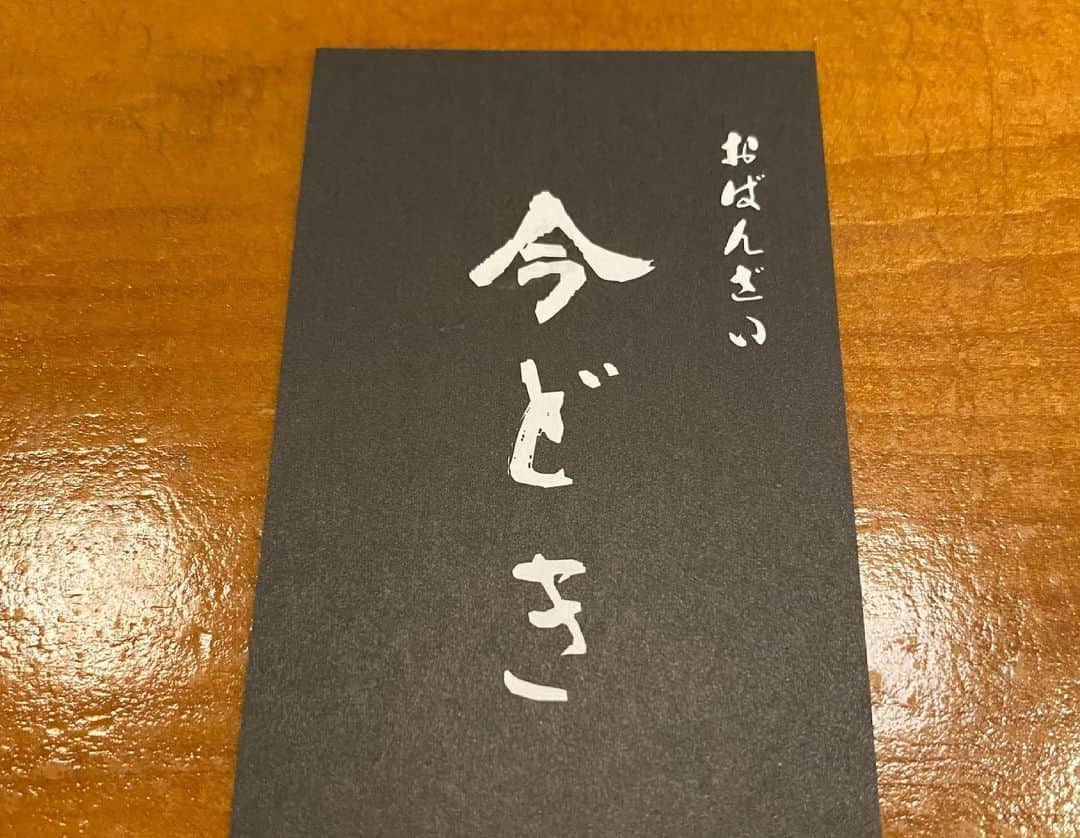 おばんざい
今どき